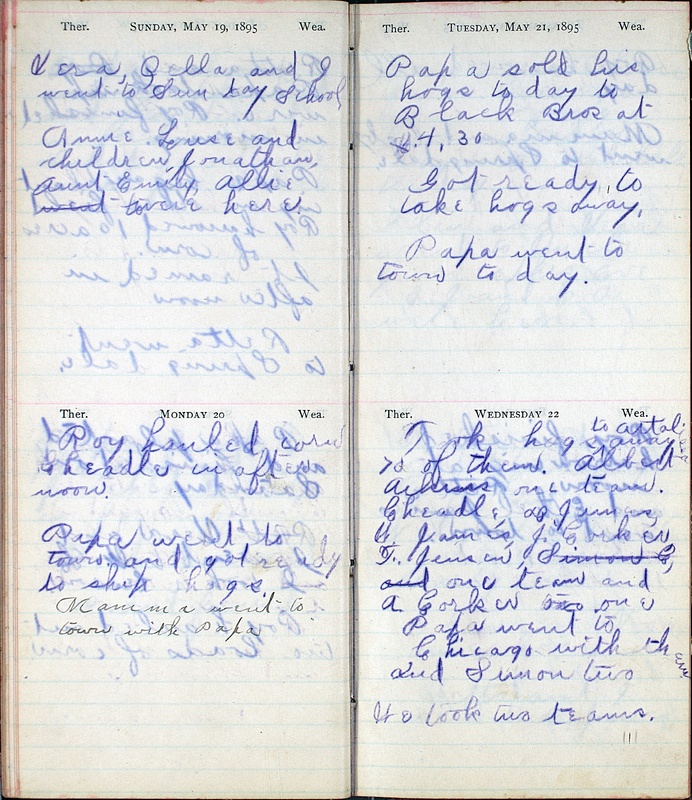 Ther. SUNDAY, MAY 19, 1895 Wea.
Vera, Zella and I
went to Sun day School
Annie. Louse and
children Jonathan,
aunt Emily, Allie
went to were here.
Ther. MONDAY 20 Wea.
Roy hauled corn
Cheadle in after
noon.
Papa went to
town and got ready
to ship hogs.
Mamma went to
town with Papa
Ther. TUESDAY, MAY 21, 1895 Wea.
Papa sold his
hogs to day to
Black Bros at
$4,30
Got ready to
take hogs away,
Papa went to
town to day.
Ther. WEDNESDAY 22 Wea.
Took hogs away
to
70 of them. Albert
one team.
Cheadle
G. James, J. Corker
F. Jensen, Simon C,
and one team and
A. Corker one
Papa went to
Chicago with them
and Simon two
He took two teams.